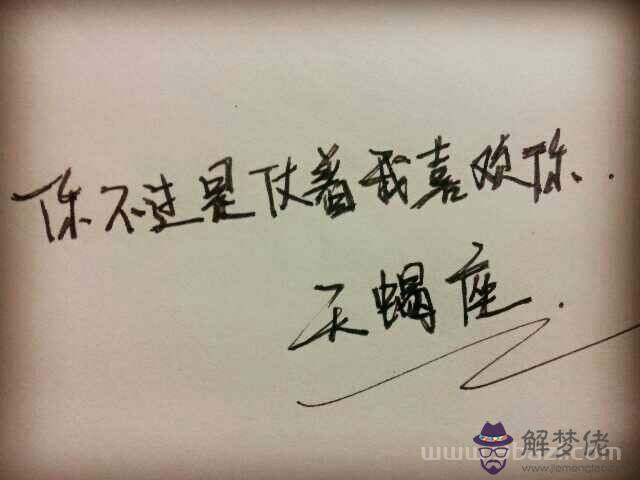 你不过是仗着我喜欢你.
天蝎座.
解梦佬